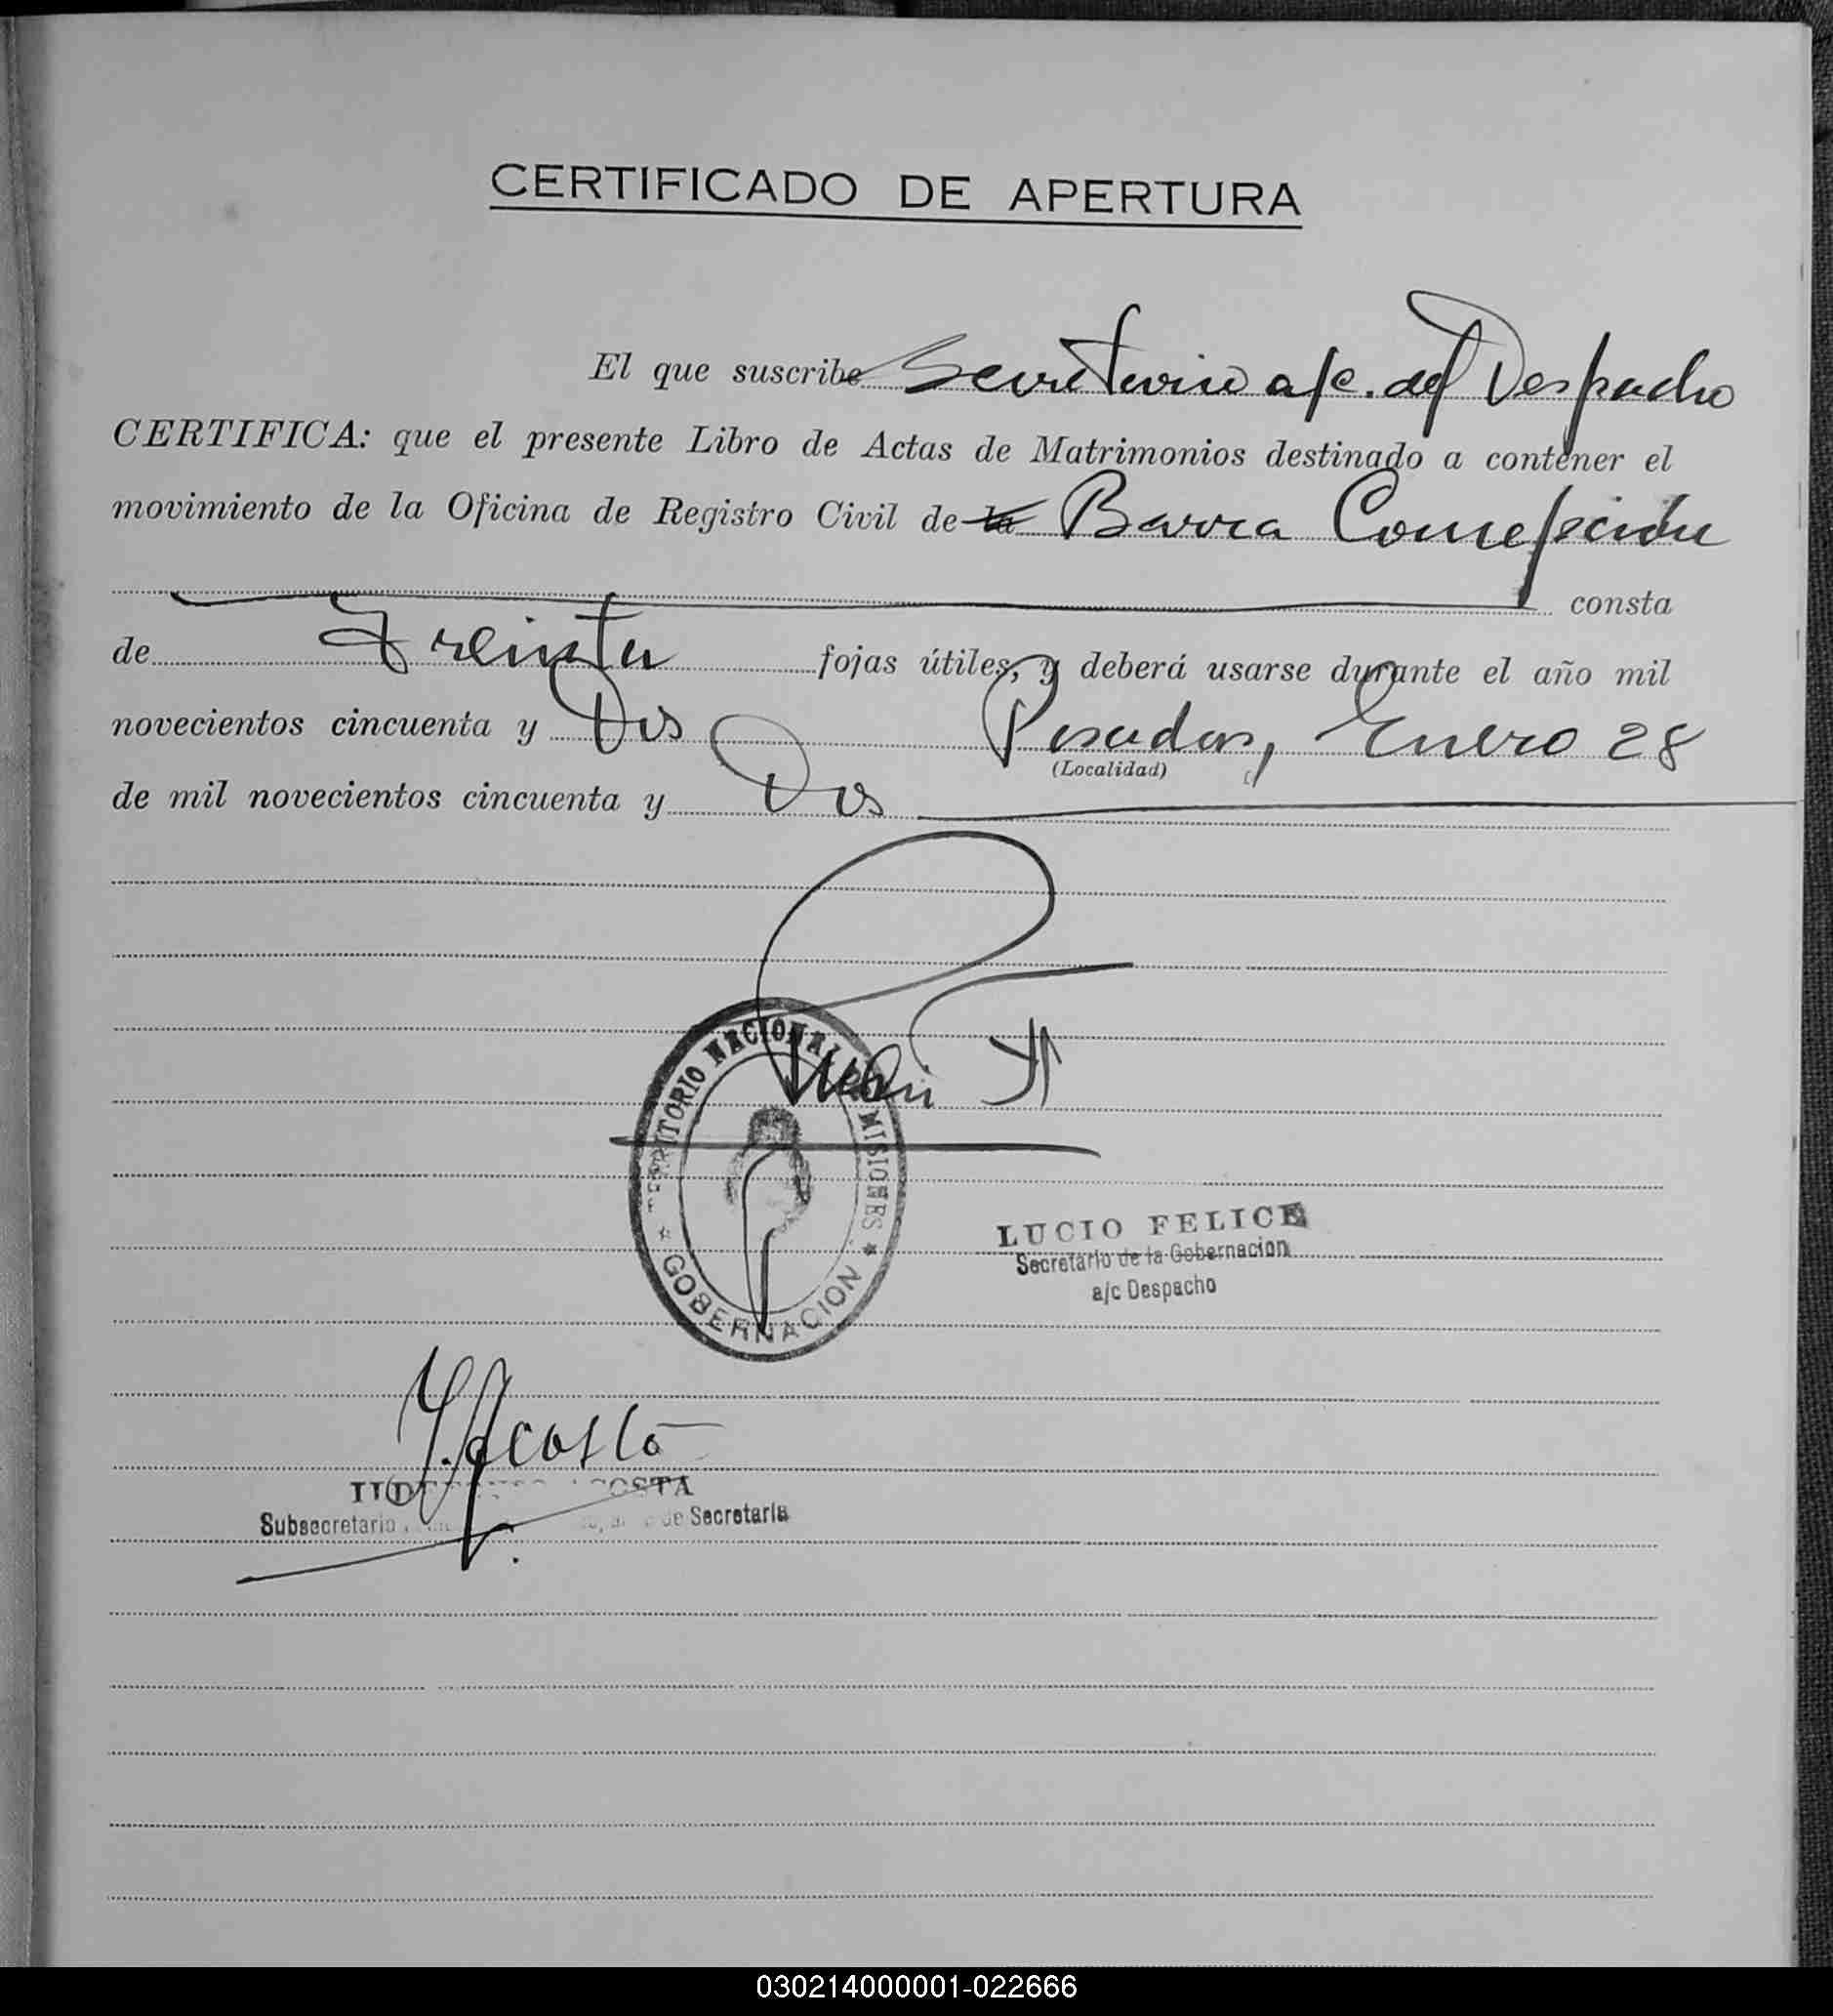 CERTIFICADO DE APERTURA
El que suscribe Secretario a/c. del Despacho
CERTIFICA: que el presente Libro de Actas de Matrimonios destinado a contener el
movimiento de la Oficina de Registro Civil de la Barra Concepción
consta
de Treinta fojas útiles, y deberá usarse durante el año mil
novecientos cincuenta y Dos Posadas, Enero 28
(Localidad)
de mil novecientos cincuenta y Dos
TERRITORIO NACIONAL MISIONES
GOBERNACION
LUCIO FELICE
Secretario de la Gobernacion
a/c Despacho
Y. Acosta
ACOSTA
Subsecretario de Secretaría
030214000001-022666